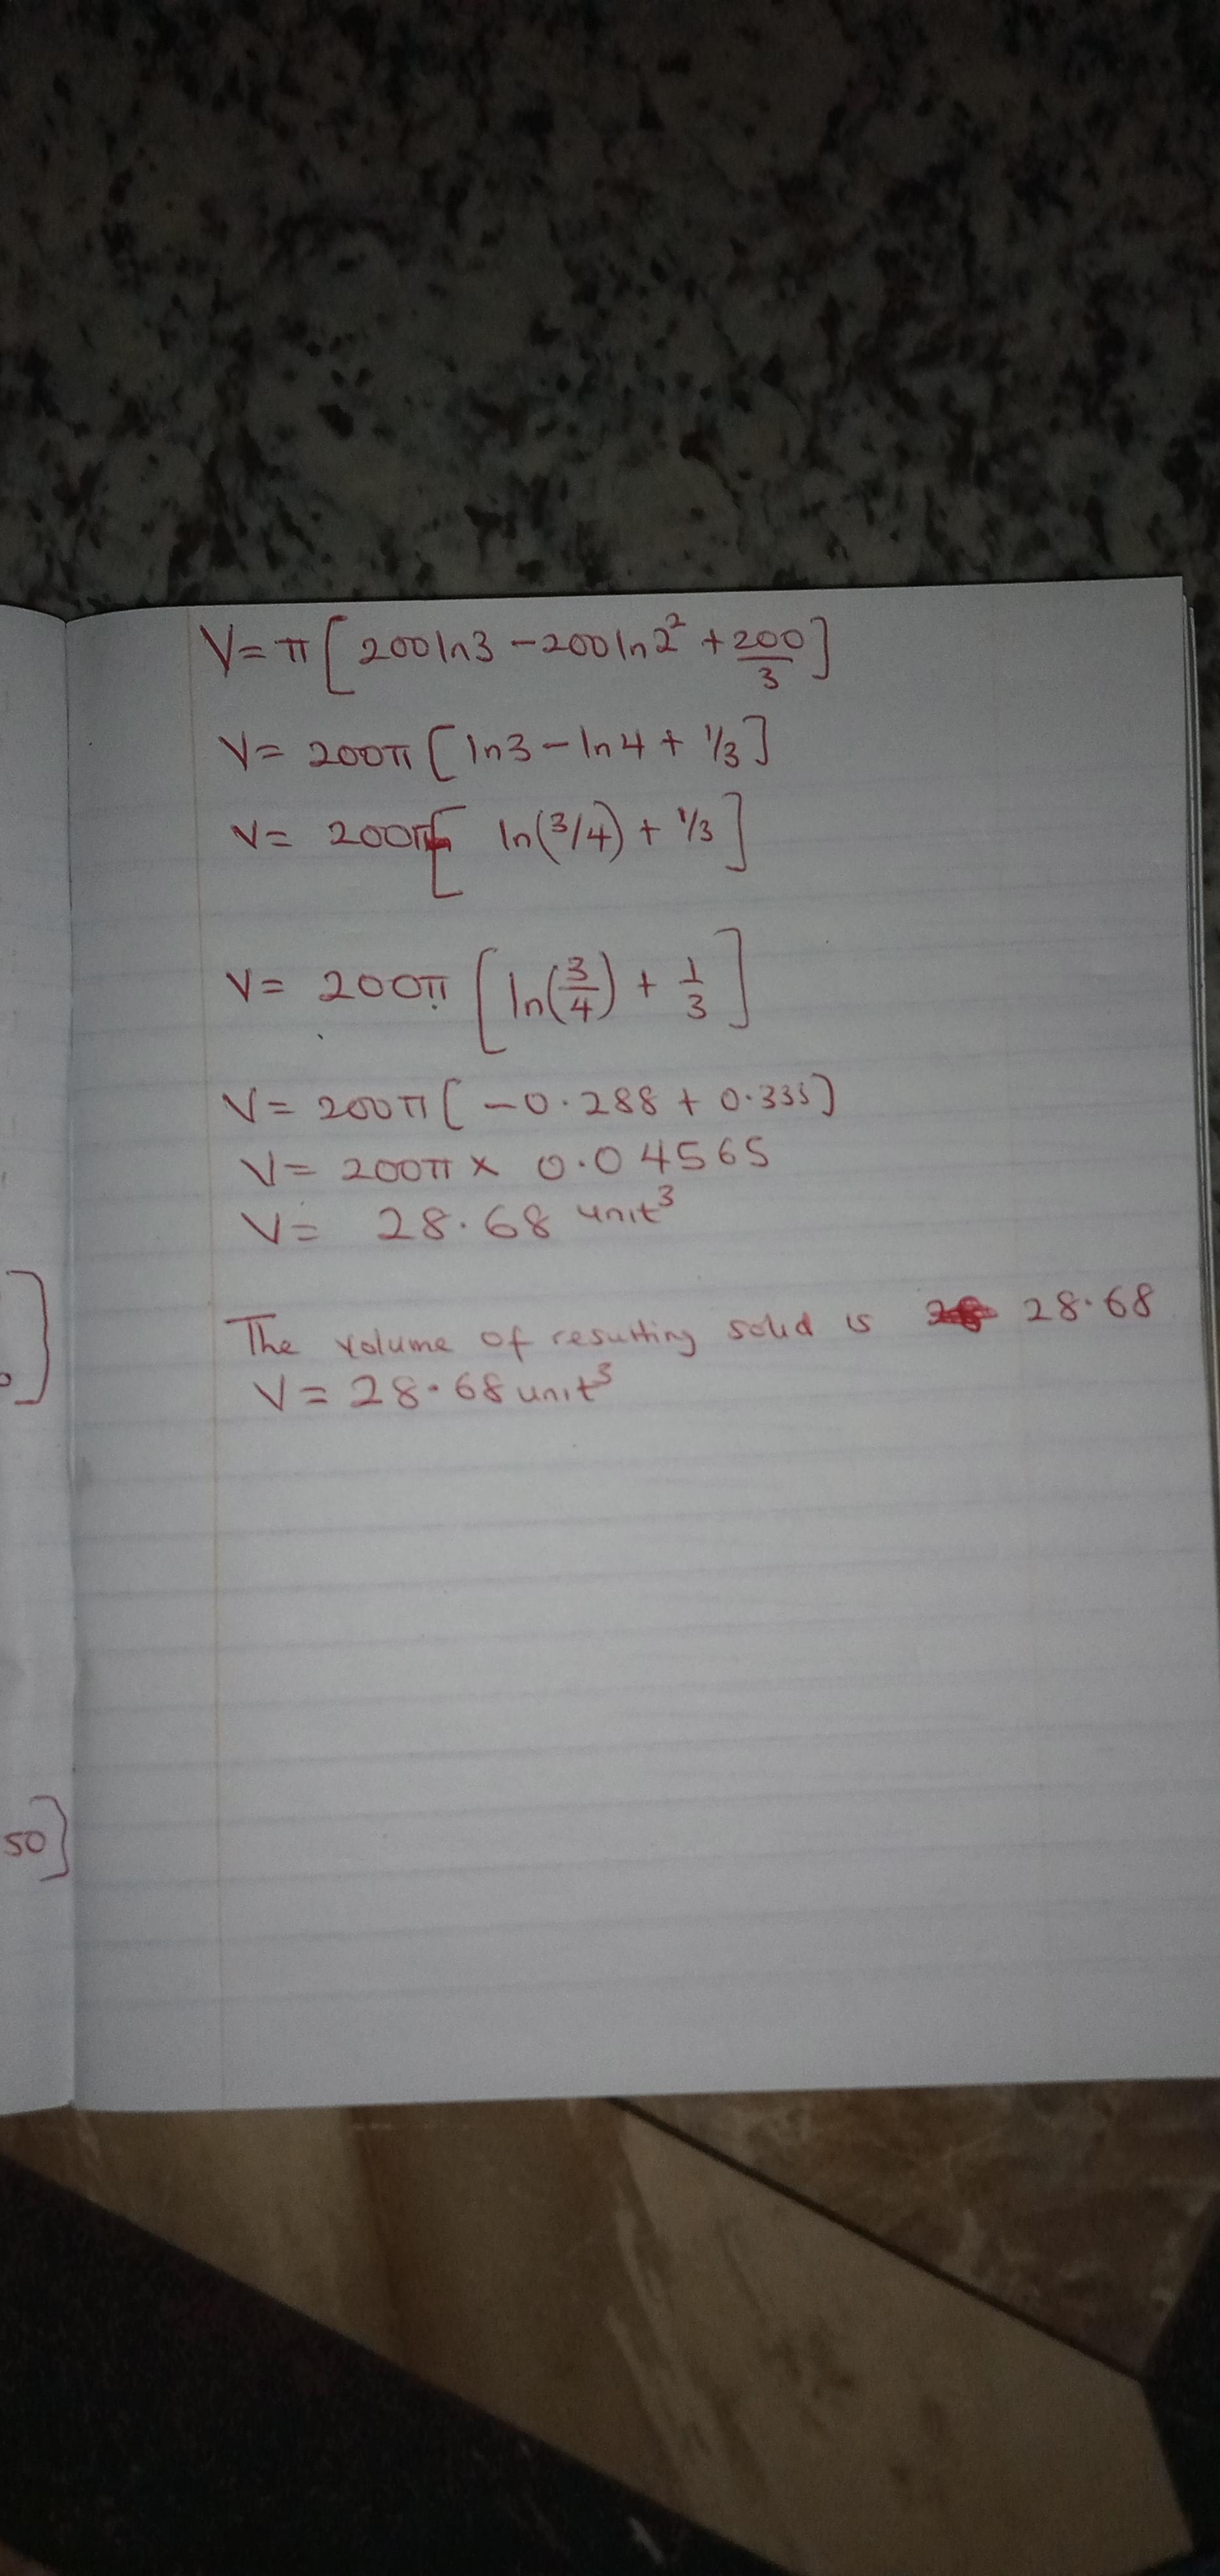 V = π [ 200ln3 - 200ln2² + 200/3 ]
V = 200π [ ln3 - ln4 + 1/3 ]
V = 200π [ ln(3/4) + 1/3 ]
V = 200π [ ln(3/4) + 1/3 ]
V = 200π [ -0.288 + 0.333 ]
V = 200π x 0.04565
V = 28.68 unit³
The volume of resulting solid is 28.68
V = 28.68 unit³
]
50 ]